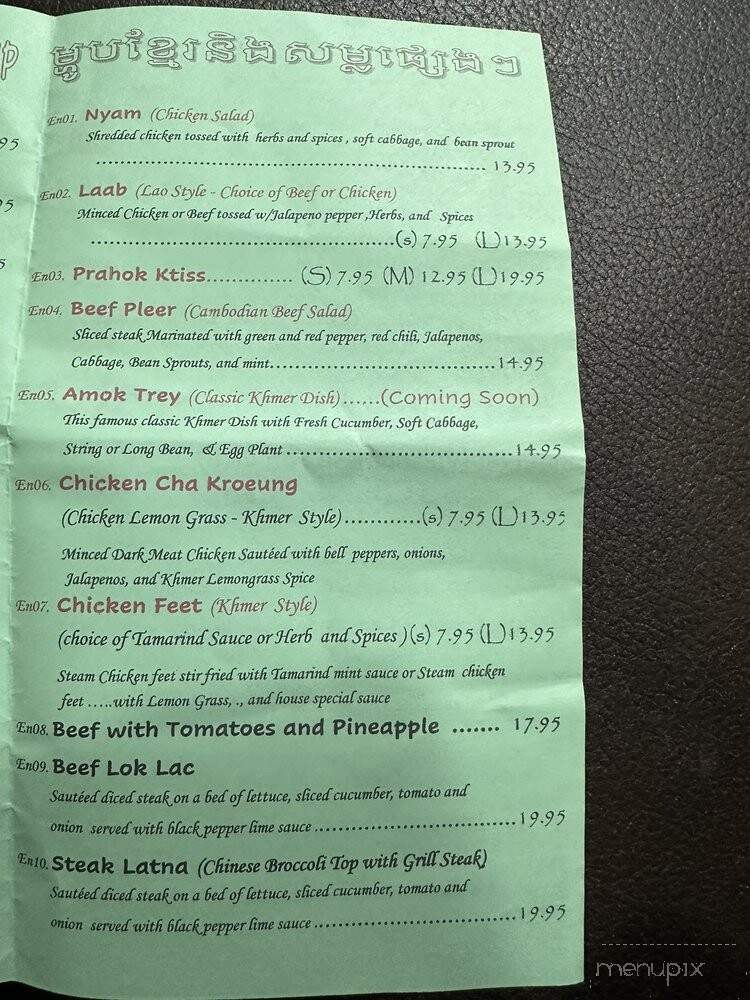 ម្ហូបខ្មែរនិងសម្លផ្សេងៗ
En01. Nyam (Chicken Salad)
Shredded chicken tossed with herbs and spices , soft cabbage, and bean sprout
................................................................ 13.95
En02. Laab (Lao Style - Choice of Beef or Chicken)
Minced Chicken or Beef tossed w/Jalapeno pepper ,Herbs, and Spices
.................................................(s) 7.95 (L)13.95
En03. Prahok Ktiss.............. (S) 7.95 (M) 12.95 (L)19.95
En04. Beef Pleer (Cambodian Beef Salad)
Sliced steak Marinated with green and red pepper, red chili, Jalapenos,
Cabbage, Bean Sprouts, and mint.....................................14.95
En05. Amok Trey (Classic Khmer Dish)......(Coming Soon)
This famous classic Khmer Dish with Fresh Cucumber, Soft Cabbage,
String or Long Bean, & Egg Plant .....................................14.95
En06. Chicken Cha Kroeung
(Chicken Lemon Grass - Khmer Style)............(s) 7.95 (L)13.95
Minced Dark Meat Chicken Sautéed with bell peppers, onions,
Jalapenos, and Khmer Lemongrass Spice
En07. Chicken Feet (Khmer Style)
(choice of Tamarind Sauce or Herb and Spices )(s) 7.95 (L)13.95
Steam Chicken feet stir fried with Tamarind mint sauce or Steam chicken
feet .....with Lemon Grass, ., and house special sauce
En08. Beef with Tomatoes and Pineapple ....... 17.95
En09. Beef Lok Lac
Sautéed diced steak on a bed of lettuce, sliced cucumber, tomato and
onion served with black pepper lime sauce .................................19.95
En10. Steak Latna (Chinese Broccoli Top with Grill Steak)
Sautéed diced steak on a bed of lettuce, sliced cucumber, tomato and
onion served with black pepper lime sauce .................................19.95
menupix